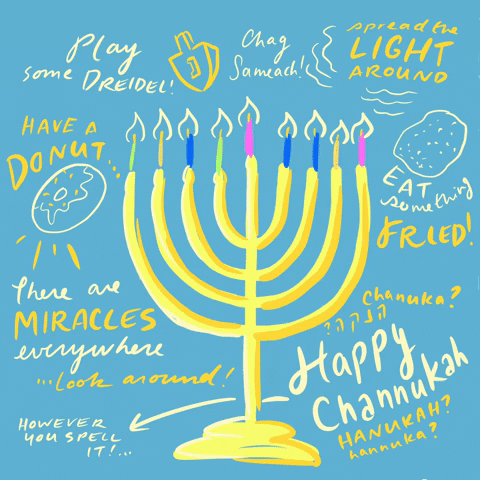 Play
some DREIDEL!
Chag
Sameach!
spread the
LIGHT
AROUND
HAVE A
DONUT...
EAT
something
FRIED!
There are
MIRACLES
everywhere
...look around!
Chanuka?
הנקה?
Happy
Channukah
HANUKAH?
hannuka?
HOWEVER
YOU SPELL
IT!...